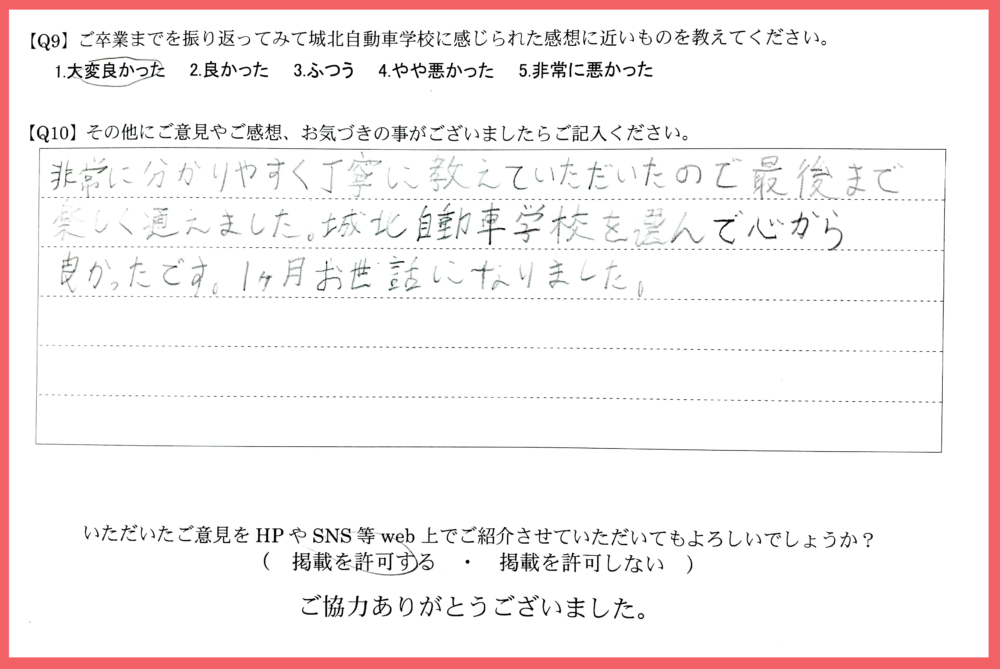 【Q9】ご卒業までを振り返ってみて城北自動車学校に感じられた感想に近いものを教えてください。
1.大変良かった 2.良かった 3.ふつう 4.やや悪かった 5.非常に悪かった
【Q10】その他にご意見やご感想、お気づきの事がございましたらご記入ください。
非常に分かりやすく丁寧に教えていただいたので最後まで
楽しく通えました。城北自動車学校を選んで心から
良かったです。1ヶ月お世話になりました。
いただいたご意見をHPやSNS等web上でご紹介させていただいてもよろしいでしょうか？
（ 掲載を許可する ・ 掲載を許可しない ）
ご協力ありがとうございました。